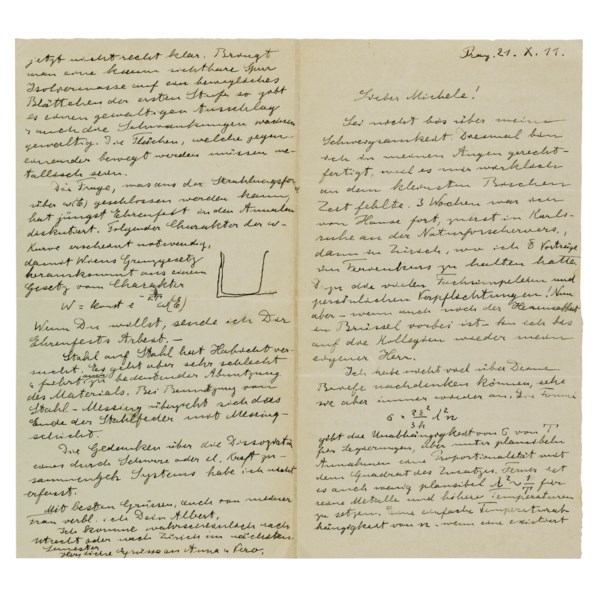 Prag. 21. X. 11.
Lieber Michele!
Sei nicht bös über meine
Schweigsamkeit. Diesmal bin
ich in meinen Augen gerecht-
fertigt, weil es mir wirklich
an dem kleinsten Bischen
Zeit fehlte. 3 Wochen war ich
von Hause fort, zuerst in Karls-
ruhe an der Naturforschervers.,
dann in Zürich, wo ich 8 Vorträge
im Ferienkurs zu halten hatte
& zu die vielen Fachsimpeleien und
persönlichen Verpflichtungen! Nun
aber - wenn auch noch der Hexensabbat
in Brüssel vorbei ist - bin ich bis
auf die Kollegien wieder mein
eigener Herr.
Ich habe nicht viel über Deine
Briefe nachdenken können, sehe
sie aber immer wieder an. Die Formel
gibt die Unabhängigkeit von σ von T
für Legierungen, aber unter plausibeln
Annahmen eine Proportionalität mit
dem Quadrat des Zusatzes. Ferner ist
es auch wenig plausibel für
reine Metalle und höhere Temperaturen
zu setzen. Eine einfache Temperaturab-
hängigkeit von n. wenn eine existiert
jetzt nicht recht klar. Bringt
man eine kaum sichtbare Spur
Isoliermasse auf ein bewegliches
Blättchen der ersten Stufe so gibt
es einen gewaltigen Ausschlag
& auch die Schwankungen werden
gewaltig. Die Flächen, welche gegen-
einander bewegt werden müssen me-
tallisch sein.
Die Frage, was aus der Strahlungsform
über w(E) geschlossen werden kann,
hat jüngst Ehrenfest in den Annalen
diskutiert. Folgender Charakter der w-
Kurve erscheint notwendig,
damit Wiens Grenzgesetz
herauskommt aus einem
Gesetz vom Charakter
Wenn Du willst, sende ich Dir
Ehrenfests Arbeit. -
Stahl auf Stahl hat Habicht ver-
sucht. Es geht aber sehr schlecht
& führt zu bedeutender Abnutzung
des Materials. Bei Benutzung von
Stahl - Messing überzieht sich das
Ende der Stahlfeder mit Messing-
schicht.
Die Gedanken über die Dissoziation
eines durch Schwere oder el. Kraft zu-
sammengeh. Systems habe ich nicht
erfasst.
Mit besten Grüssen, auch von meiner
Frau verbl. ich Dein Albert.
Ich komme wahrscheinlich nach
Utrecht oder nach Zürich im nächsten
Semester
Herzliche Grüsse an Anna & Vero.